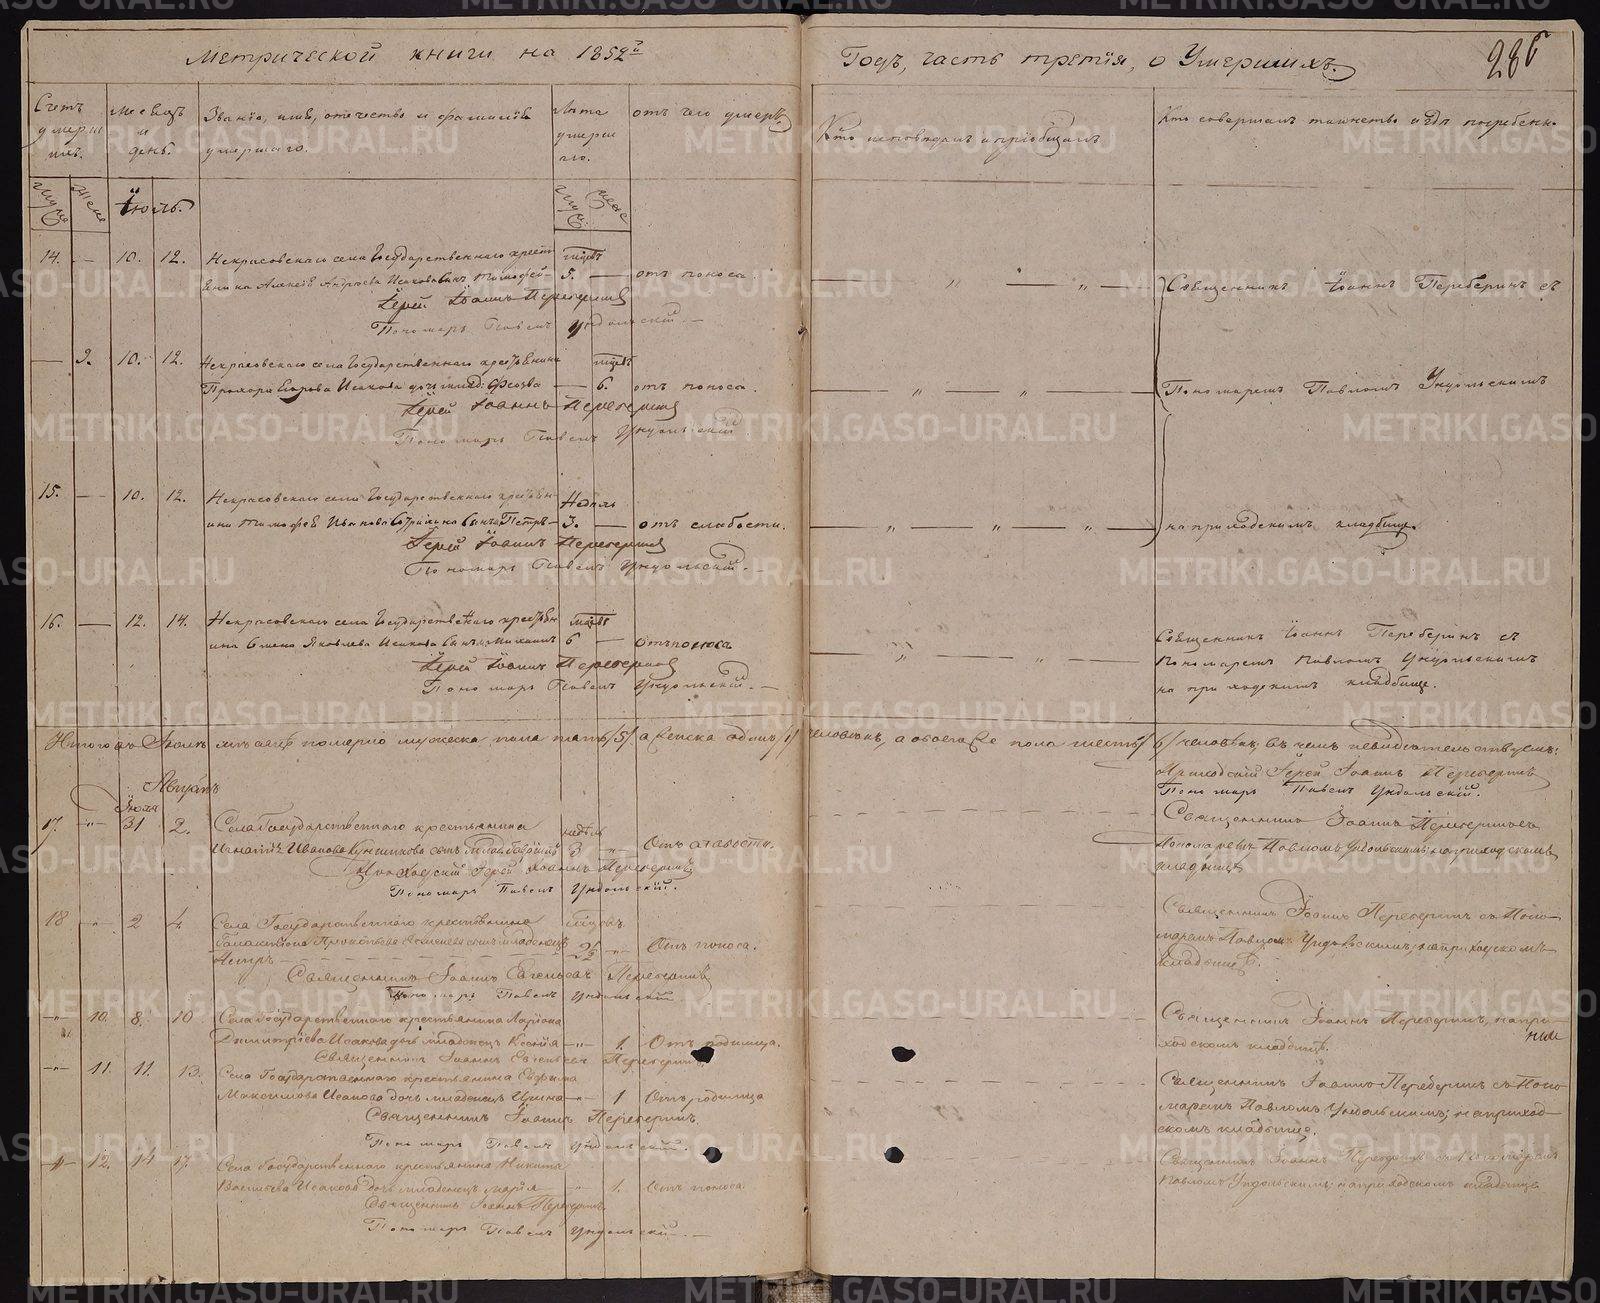 Метрической книги на 1852й
Годъ, часть третія, о Умершихъ.
286
Счетъ умершихъ.
Мѣсяцъ и день.
Званіе, имя, отечество и фамилія умершаго.
Лѣта умершаго.
отъ чего умеръ.
Кто исповѣдалъ и пріобщалъ
Кто совершалъ таинство и гдѣ погребены
Іюль.
14. — 10. 12. Некрасовскаго села Государственнаго крестьянина Алексѣя Андреева Исакова сынъ Тимофей — 5. — отъ поноса
Іерей Іоаннъ Переберинъ
Пономарь Павелъ Ундольскій. —
Священникъ Іоаннъ Переберинъ съ
— 9. 10. 12. Некрасовскаго села Государственнаго крестьянина
Прохора Исакова дочь — 6. отъ поноса.
Іерей Іоаннъ Переберинъ
Пономарь Павелъ Ундольскій
Пономаремъ Павломъ Ундольскимъ
15. — 10. 12. Некрасовскаго села Государственнаго крестьянина Тимофея Иванова сынъ Петръ — Недѣль 3. — отъ слабости.
Іерей Іоаннъ Переберинъ
Пономарь Павелъ Ундольскій. —
на приходскимъ кладбище.
16. — 12. 14. Некрасовскаго села Государственнаго крестьянина Яковлева Исакова сынъ Михаилъ 6 — отъ поноса
Іерей Іоаннъ Переберинъ
Пономарь Павелъ Ундольскій. —
Священникъ Іоаннъ Переберинъ съ
Пономаремъ Павломъ Ундольскимъ
на приходскимъ кладбище.
Итого въ Іюлѣ мѣсяцѣ померло мужеска пола пять /5/ а женска одинъ /1/ человѣкъ, а обоего же пола шесть /6/ человѣкъ; въ чемъ
Приходскій Іерей Іоаннъ Переберинъ
Пономарь Павелъ Ундольскій.
Августъ
Іюля
17. 31 2. Села Государственнаго крестьянина
Игнатія Иванова сынъ недѣль 3 Отъ слабости.
Приходскій Іерей Іоаннъ Переберинъ
Пономарь Павелъ Ундольскій.
Священникъ Іоаннъ Переберинъ съ
Пономаремъ Павломъ Ундольскимъ; на приходскомъ
кладбищѣ
18 2 4. Села Государственнаго крестьянина
Галактіона младенецъ
Петръ Отъ поноса.
Священникъ Іоаннъ Евгеньевъ Переберинъ
Пономарь Павелъ Ундольскій
Священникъ Іоаннъ Переберинъ съ Пономаремъ Павломъ Ундольскимъ; на приходскомъ
кладбищѣ.
10. 8. 10 Села Государственнаго крестьянина Ларіона
Димитріева Исакова дочь младенецъ Ксенія 1. Отъ родимца.
Священникъ Іоаннъ Евгеньевъ Переберинъ.
Священникъ Іоаннъ Переберинъ, на приходскомъ кладбищѣ.
11. 11. 13. Села Государственнаго крестьянина Ефима
Максимова Исакова дочь младенецъ Ирина 1 Отъ родимца
Священникъ Іоаннъ Переберинъ.
Пономарь Павелъ Ундольскій.
Священникъ Іоаннъ Переберинъ съ Пономаремъ Павломъ Ундольскимъ; на приходскомъ кладбищѣ.
12. 14 17. Села Государственнаго крестьянина Никиты
Васильева Исакова дочь младенецъ Марія 1. Отъ поноса
Священникъ Іоаннъ Переберинъ
Пономарь Павелъ Ундольскій. —
Священникъ Іоаннъ Переберинъ съ Пономаремъ
Павломъ Ундольскимъ; на приходскомъ кладбищѣ
METRIKI.GASO-URAL.RU